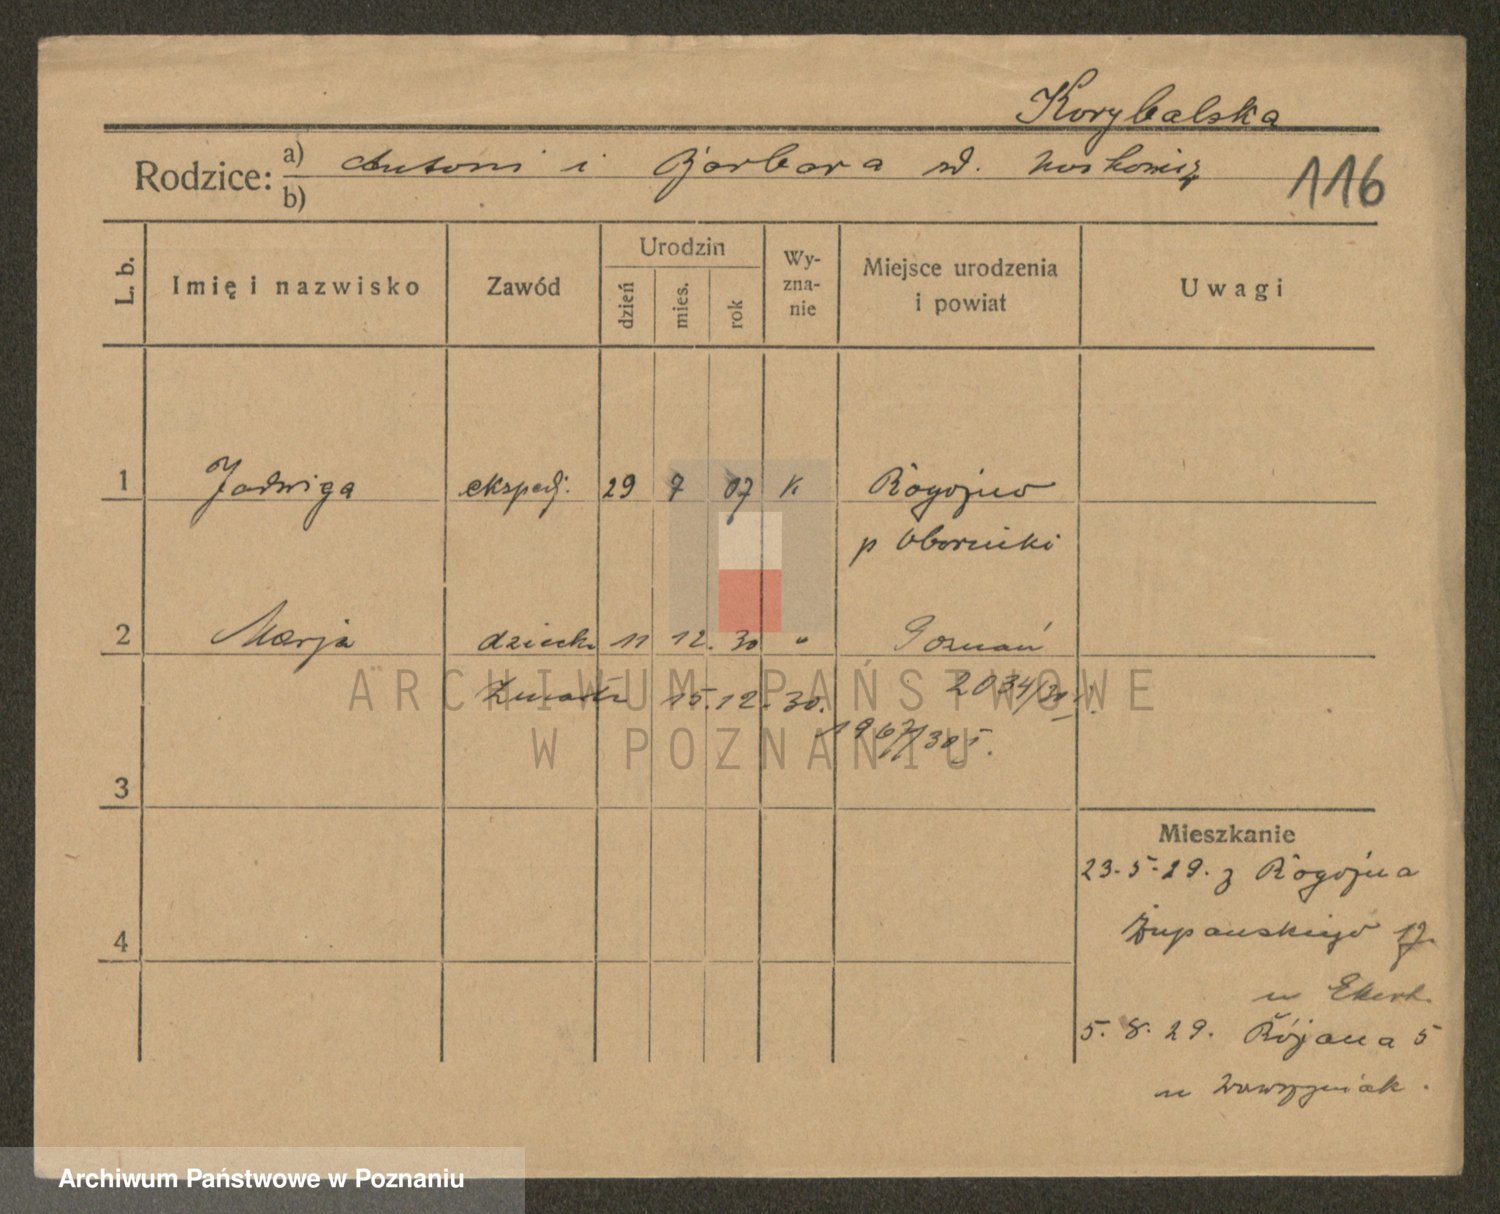 Korybalska
Rodzice: a) Antoni i Barbara
b)
116
L. b. Imię i nazwisko Zawód Urodzin Wy-zna-nie Miejsce urodzenia i powiat Uwagi
dzień mies. rok
1 Jadwiga ekspedj. 29 7 07 K Rogoźno
p Oborniki
2 Marja dziecko 11 12. 30 " Poznań
Zmarła 15.12.30. 2034/30
1967/30
3
Mieszkanie
23.5.29. z Rogoźna
4
Żupańskiego 17.
u Ekert.
5.8.29. Różana 5
u Wawrzyniak.
ARCHIWUM PAŃSTWOWE
W POZNANIU
Archiwum Państwowe w Poznaniu